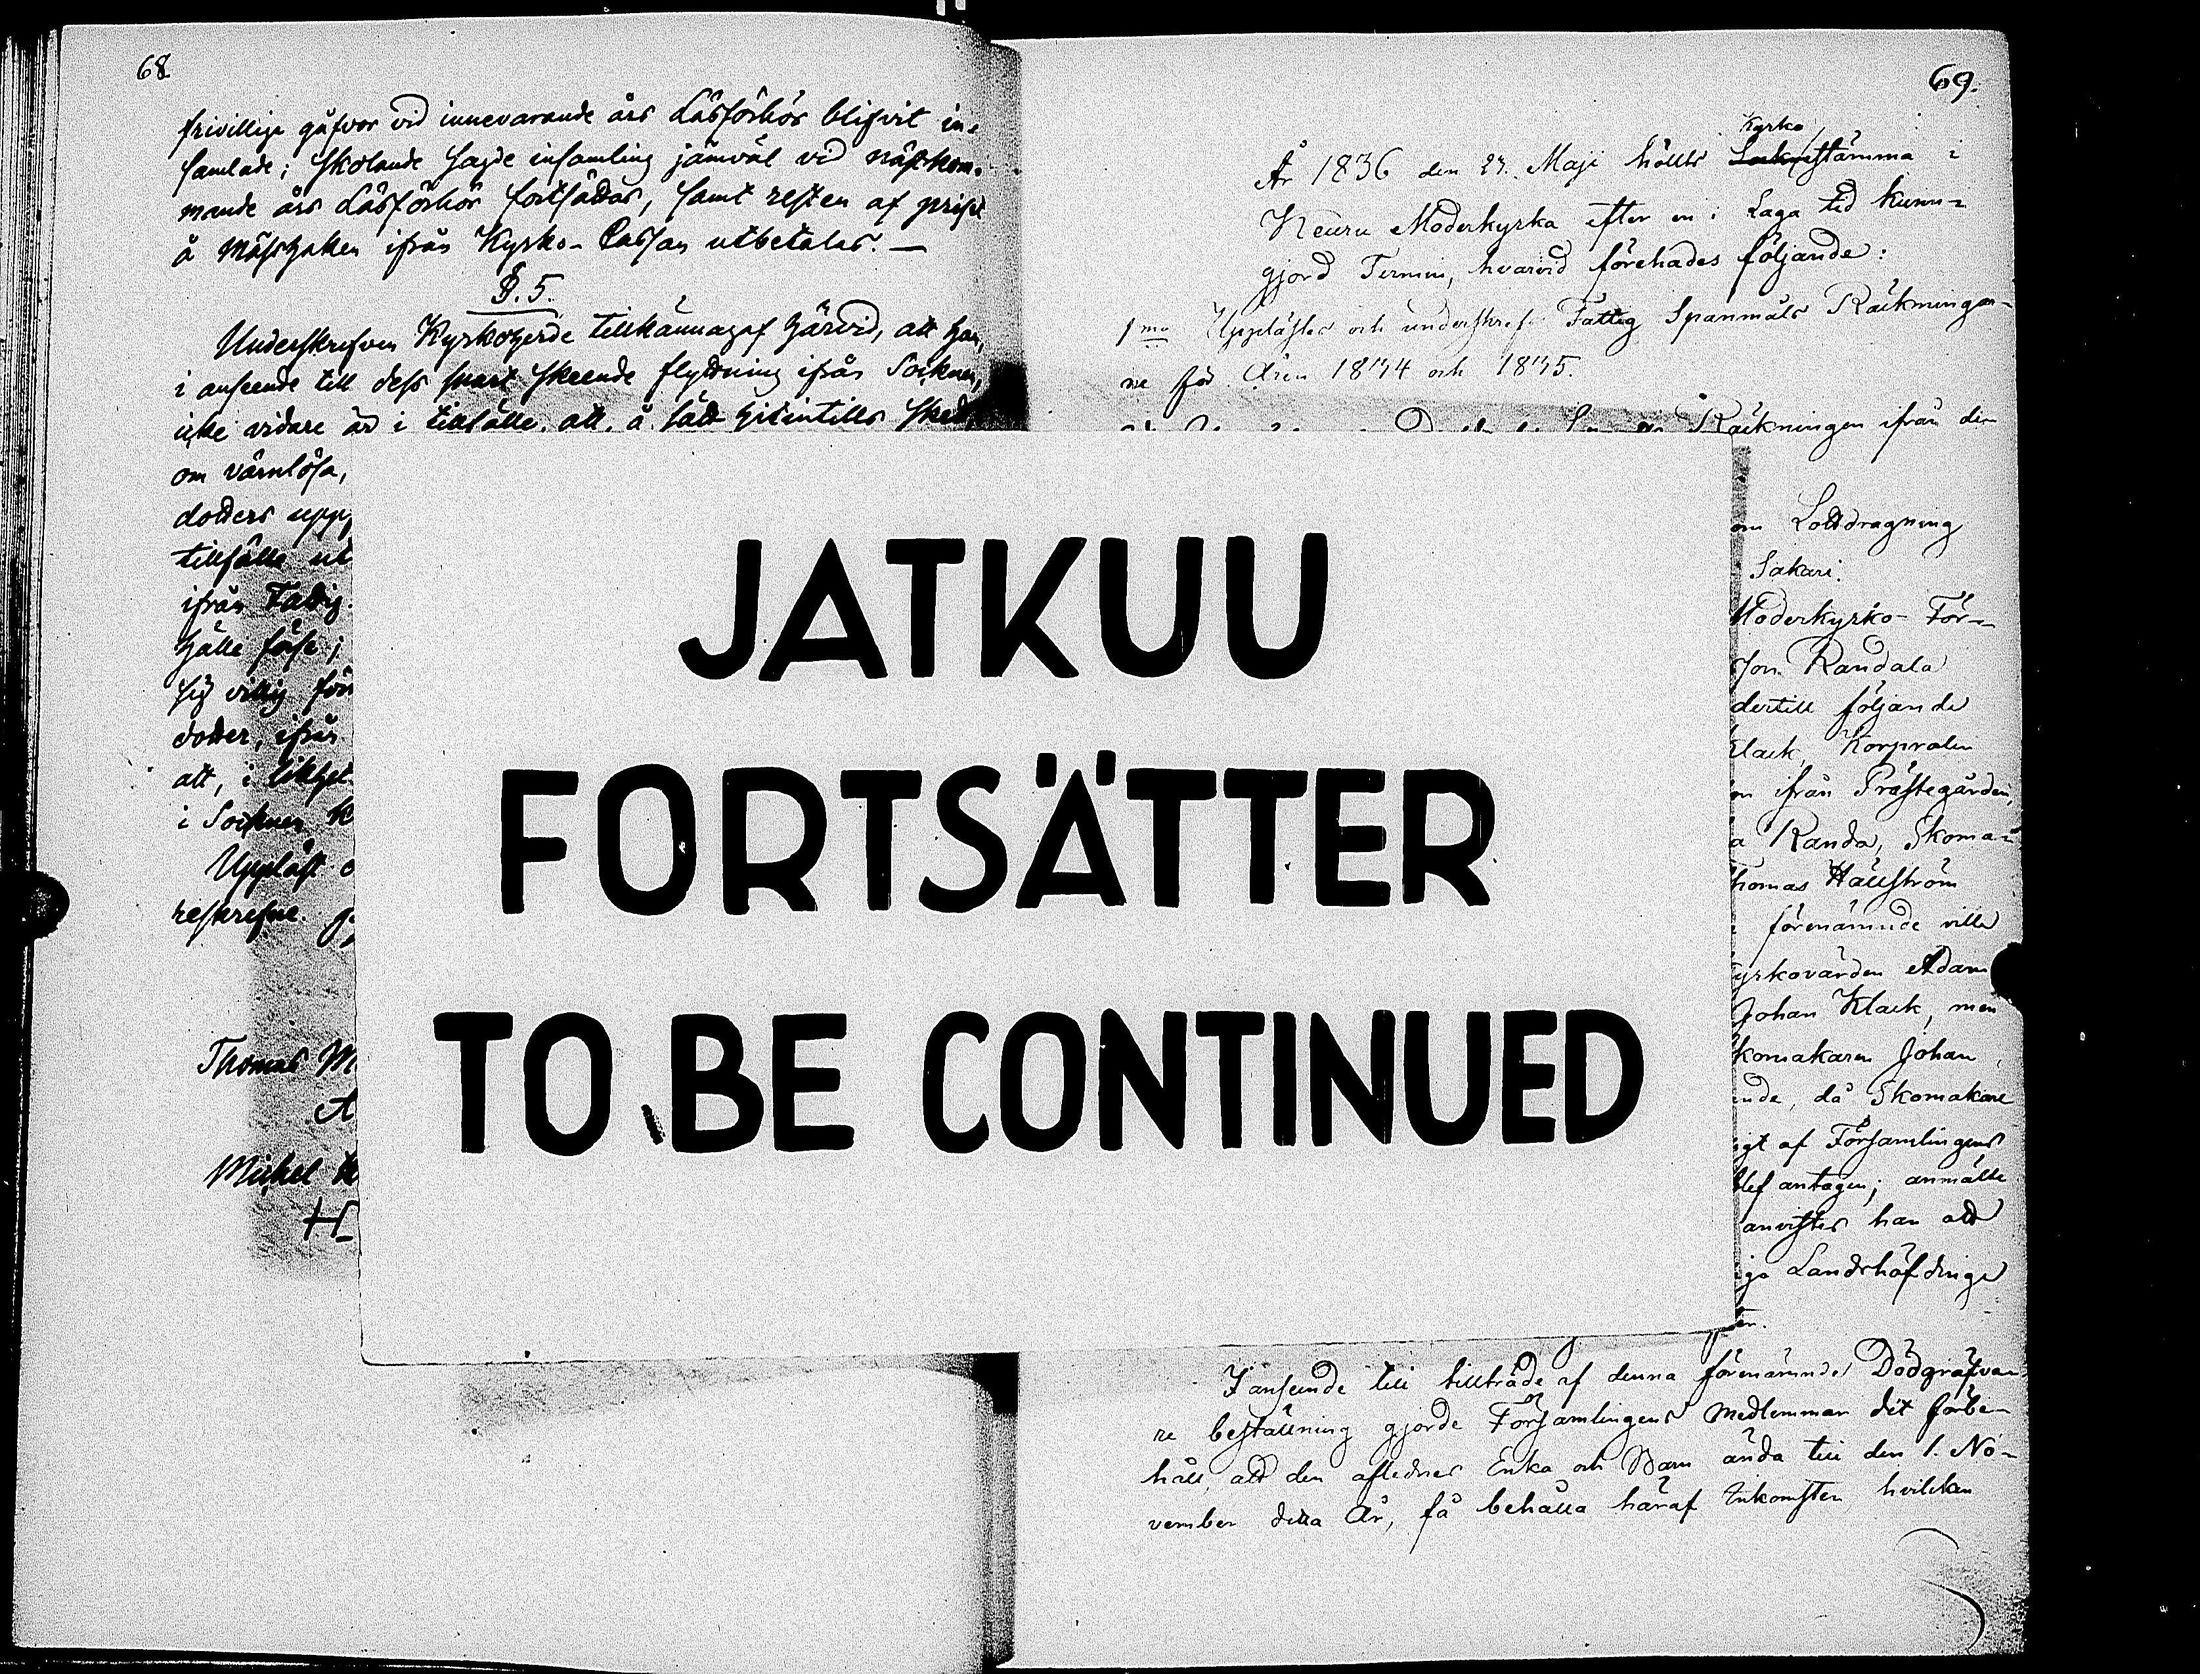 68
frivillige gåfvor vid innevarande års Läsförhör blifvit in-
samlade; skolande sagde insamling jämväl vid nästkom-
mande års Läsförhör fortsättas, samt resten af priset
å Mässhaken ifrån Kyrko-Cassan utbetalas. —
§. 5.
Underskrefven Kyrkoherde tillkännagaf härvid, att han,
i anseende till dess snart skeende flyttning ifrån Socknen,
icke vidare är i tillfälle, att, å sätt hitintills skedt
om värnlösa,
dotters upp
tillfälle ut
ifrån Fattig
hålle före;
sig villig för
dotter, ifrån
att, i likhet
i Socknen K
Uppläst o
reskrefne.
Thomas M
A
Michel K
H
69.
Kyrko
År 1836 den 27. Maji hölls Sockenstämma i
Keuru Moderkyrka efter en i Laga tid kunn-
gjord Termin, hvarvid förehades följande:
1mo Upplästes och underskrefs Fattig Spanmåls Räkningar-
ne för Åren 1834 och 1835.
Räkningen ifrån den
om Lottdragning
Sakari.
Moderkyrko-För-
son Randala
dertill följande
Klack, Korpralen
n ifrån Prästegården,
a Randa, Skoma-
Thomas Hällström
förenämnde ville
Kyrkovärden Adam
Johan Klack, men
Skomakaren Johan
ende, då Skomakare
igt af Församlingens
blef antagen; anmälte
anvistes han att
ga Landshöfdinge
ten.
I anseende till tillträde af denna förenämnde Dödgräfva-
re beställning gjorde Församlingens Medlemmar det förbe-
håll, att den aflednes Enka och Barn ända till den 1. No-
vember detta År, få behålla häraf Inkomsten, hvilken
JATKUU
FORTSÄTTER
TO BE CONTINUED